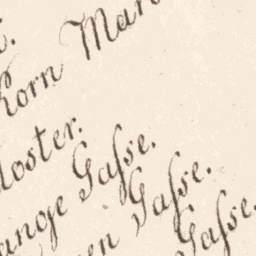 Korn Mar
loster.
ange Gaſse.
en Gaſse.
Gaſse.